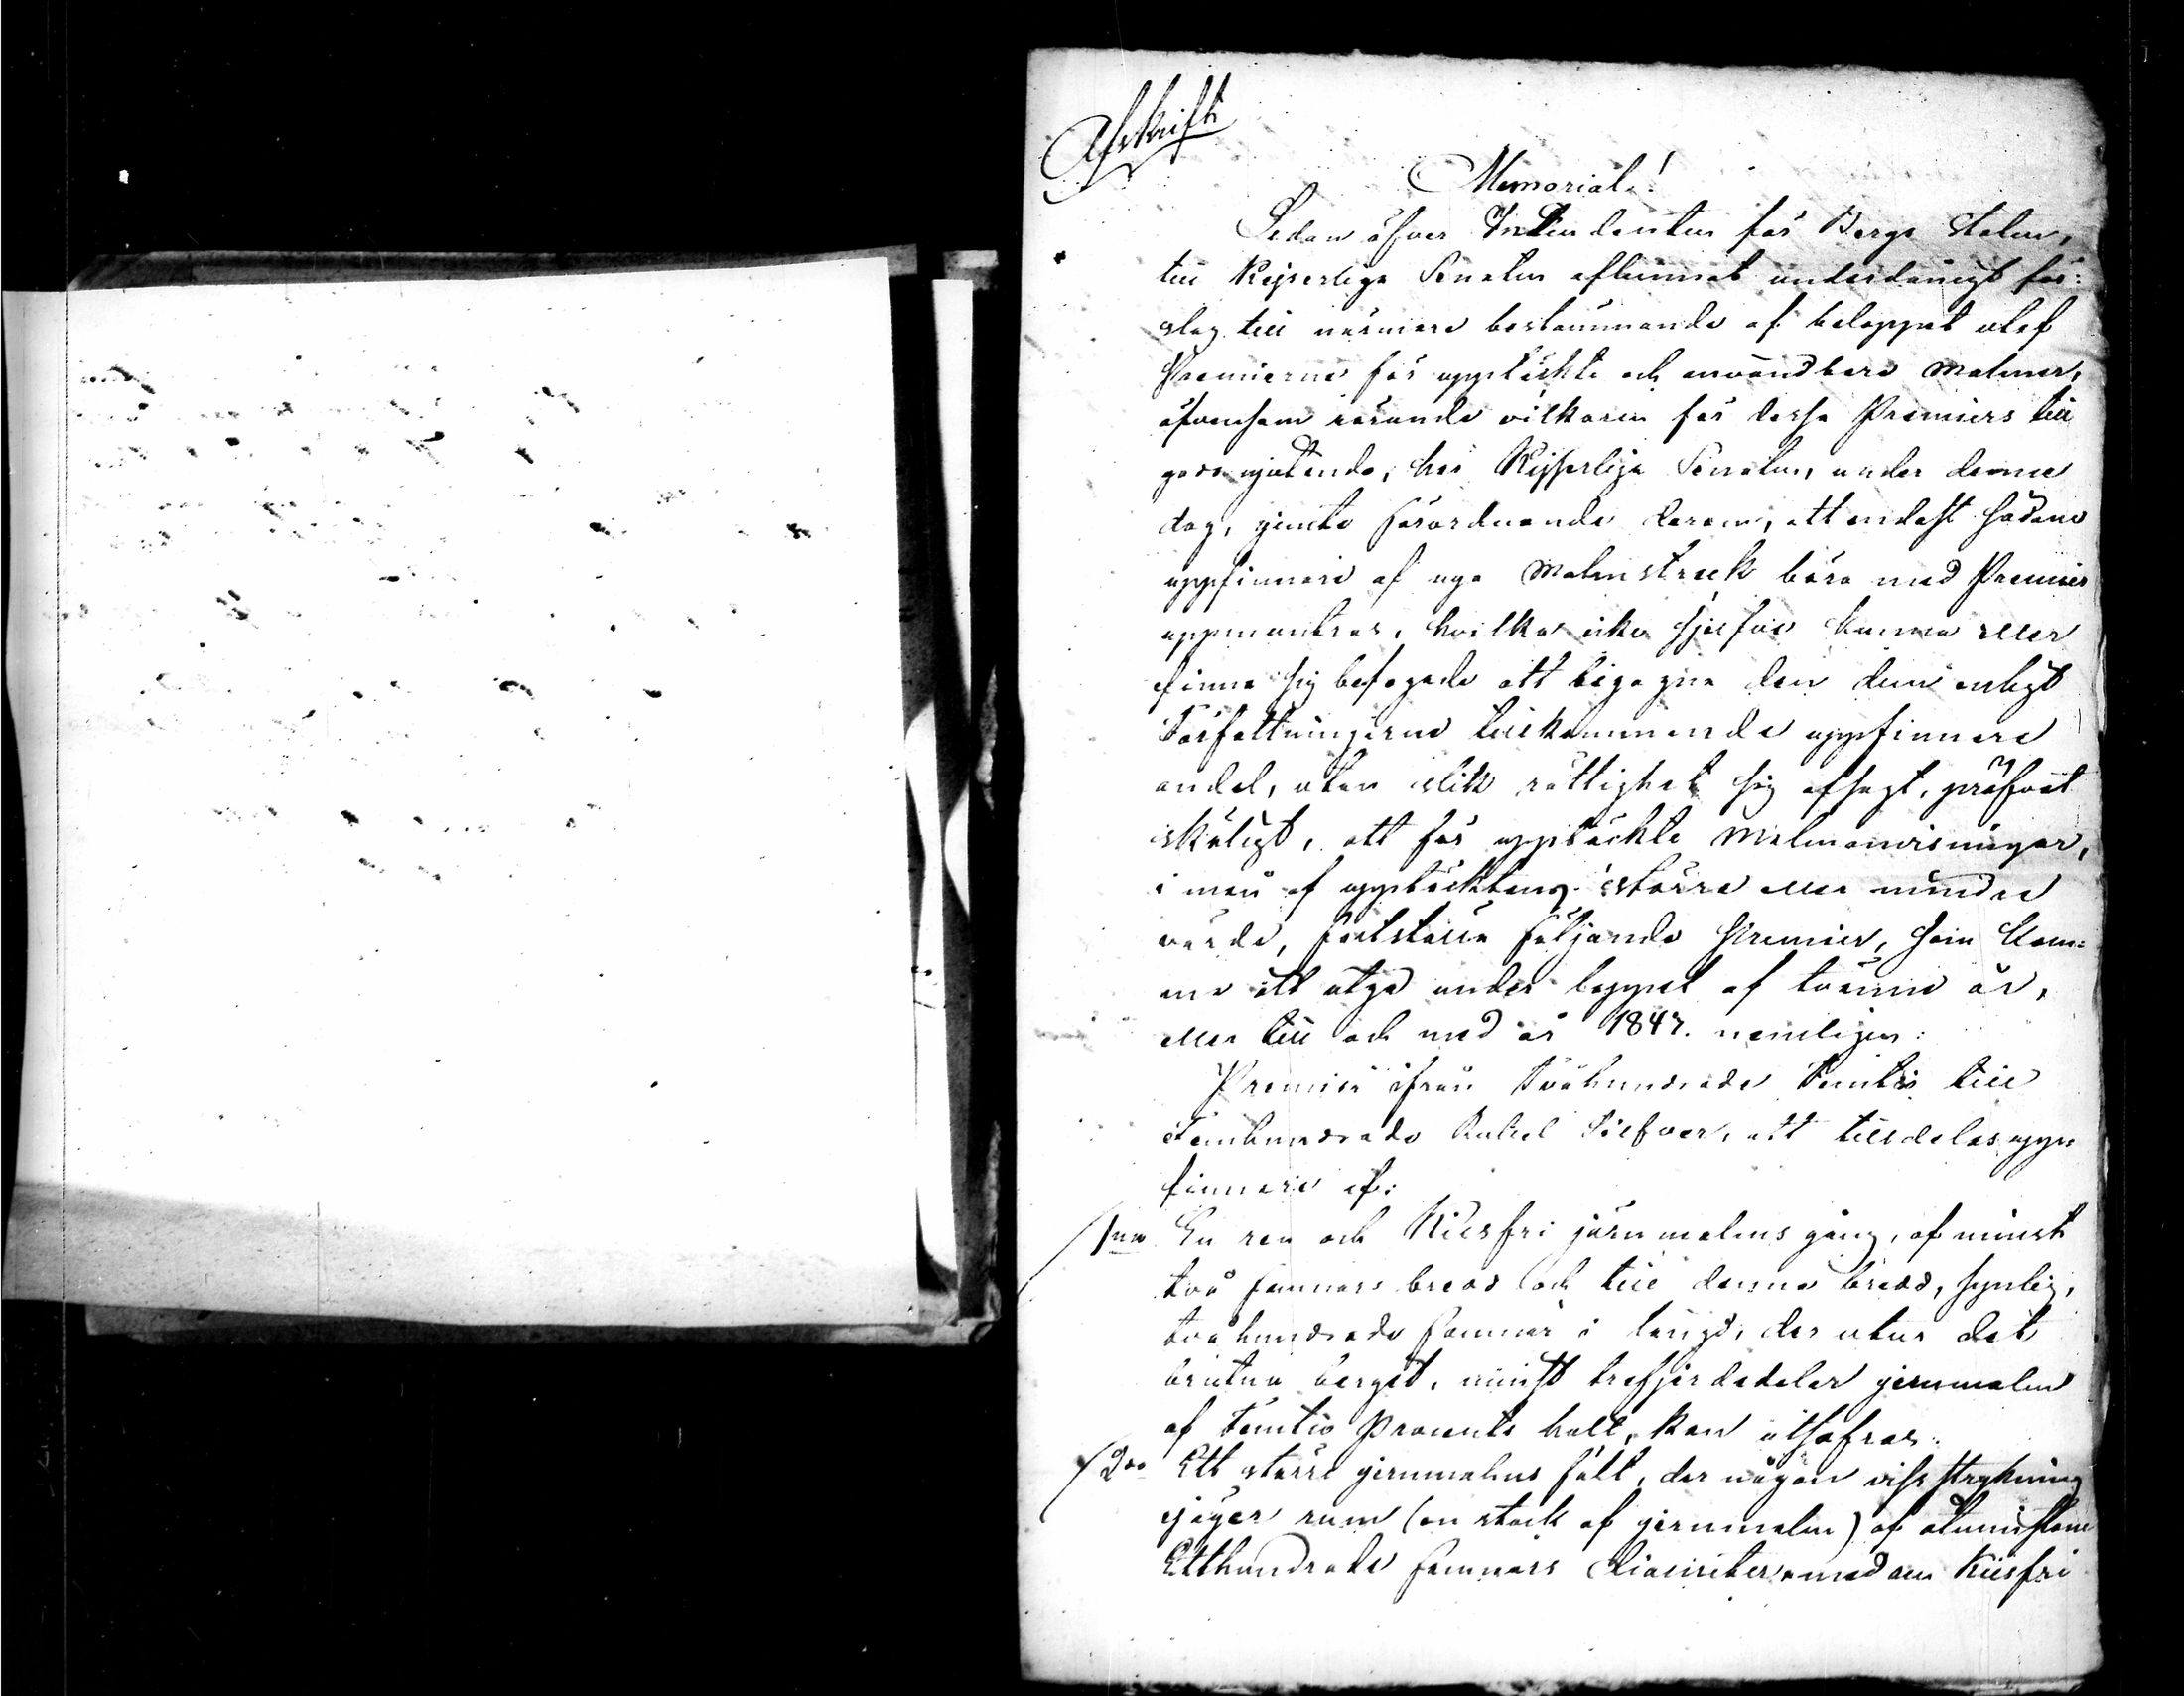 Afskrift
Memorial!
Sedan öfver Intendenten för Bergs Staten,
till Kejserliga Senaten aflemnat underdånigt för:
slag till närmare bestämmande af beloppet utaf
Premierne för upptäckte och användbara Malmer,
äfvensom rörande vilkoren för dessa Premiers till
godo njutande, har Kejserliga Senaten, under denne
dag, jemte förordnande derom, att endast sådane
uppfinnare af nya Malmstreck böra med Premier
uppmuntras, hvilka icke sjelfve kunna eller
finna sig befogade att begagna den dem enligt
Författningarne tillkommande uppfinnare
andel, utan slik rättighet sig afsagt, pröfvat
skäligt, att för upptäckte Malmanvisningar,
i mån af upptäcktens större eller mindre
värde, fastställa följande Premier, som kom:
ma att utgå under loppet af tvenne år,
eller till och med år 1847. nemligen:
Premier ifrån Tvåhundrade Femtio till
Femhundrade Rubel Silfver, att tilldelas upp:
finnare af:
1mo En ren och Kiesfri jernmalms gång, af minst
två famnars bredd och till denna bredd, synlig,
tvåhundrade famnar i längd, der utur det
brutna berget, minst trefjerdedelar jernmalm
af Femtio Procents halt, kan utsofras.
2do Ett större jernmalms fält, der någon viss strykning
ej äger rum (en stock af jernmalm) af åtminstone
Etthundrade famnars diameter, med ren Kiesfri